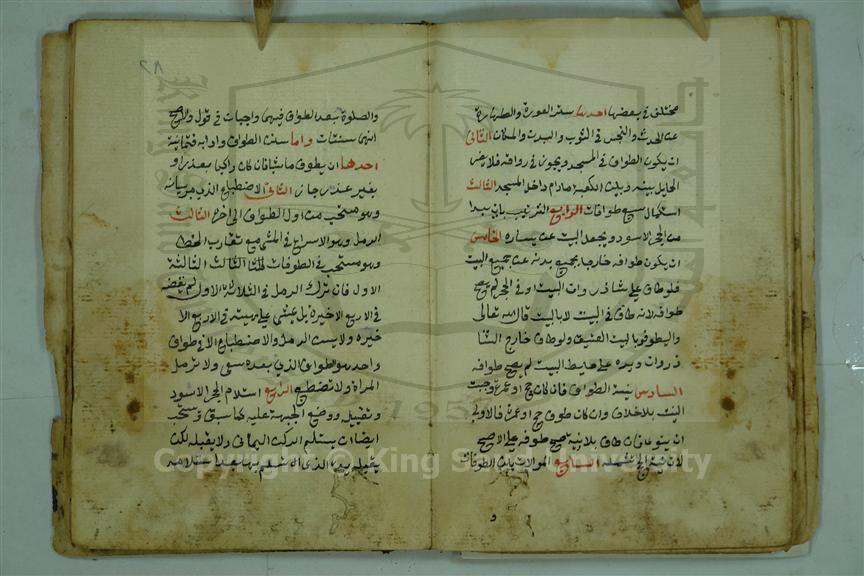 مختلف في بعضها احدها ستر العورة والطهارة
عن الحدث والنجس في الثوب والبدن والمكان الثاني
ان يكون الطواف في المسجد ويجوز في رواقه فلا يضر
الحايل بينه وبين الكعبة مادام داخل المسجد الثالث
استكمال سبع طوافات الرابع الترتيب بان يبدا
من الحجر الاسود ويجعل البيت عن يساره الخامس
ان يكون طوافه خارجا بجميع بدنه عن جميع البيت
فلو طاف على شاذروان البيت او في الحجر لم يصح
طوافه لانه طاف في البيت لا بالبيت قال الله تعالى
وليطوفوا بالبيت العتيق ولو طاف خارج الشا
ذروان ويده على حايط البيت لم يصح طوافه
السادس نية الطواف فان كان في حج او عمرة وجبت
النيت بلا خلاف وان كان طوف حج او عمرة فالاولى
ان ينوي فان طاف بلا نية صح طوفه على الاصح
لان نية الحج تشمله السابع الموالات بين الطوفات
و
٨٢
والصلوة بعد الطواف فيهما واجبات في قول والاصح
انهما سنتان واما سنن الطواف وادابه فثمانية
احدها ان يطوف ماشيا فان كان راكبا بعذر و
بغير عذر جاز الثاني الاضطباع الذي مر بيانه
وهو مستحب من اول الطواف الى اخره الثالث
الرمل وهو الاسراع في المشي مع تقارب الخطا
وهو مستحب في الطوفات الثالث الثلاثة
الاول فان ترك الرمل في الثلاثة الاول لم يقضه
في الاربع الاخيرة بل يمشي على هينته في الاربع الا
خيرة ولا يسن الرمل والاضطباع الا في طواف
واحد وهو الطواف الذي بعده سعي ولا ترمل
المراة ولا تضطبع الرابع استلام الحجر الاسود
وتقبيله ووضع الجبهة عليه كما سبق ويستحب
ايضا ان يستلم الركن اليماني ولا يقبله لكن
يقبل يده الذي استلم بها بعد استلامه
Copyright © King Saud University
1957